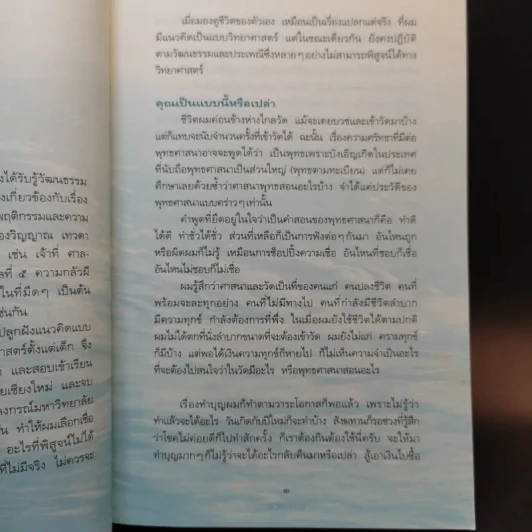 ได้รับรู้วัฒนธรรม
เกี่ยวข้องกับเรื่อง
พฤติกรรมและความ
องวิญญาณ เทวดา
เช่น เจ้าที่ ศาล-
ลที่ ๕ ความกลัวผี
ในที่มืดๆ เป็นต้น
ช่นกัน
ปลูกฝังแนวคิดแบบ
าสตร์ตั้งแต่เด็ก จึง
และสอบเข้าเรียน
ยเชียงใหม่ และจบ
ลงกรณ์มหาวิทยาลัย
น ทำให้ผมเลือกเชื่อ
อะไรที่พิสูจน์ไม่ได้
ที่ไม่มีจริง ไม่ควรจะ
เมื่อมองดูชีวิตของตัวเอง เหมือนเป็นเรื่องแปลกแต่จริง ที่ผม
มีแนวคิดเป็นแบบวิทยาศาสตร์ แต่ในขณะเดียวกัน ยังคงปฏิบัติ
ตามวัฒนธรรมและประเพณีซึ่งหลายๆ อย่างไม่สามารถพิสูจน์ได้ทาง
วิทยาศาสตร์
คุณเป็นแบบนี้หรือเปล่า
ชีวิตผมค่อนข้างห่างไกลวัด แม้จะเคยบวชและเข้าวัดมาบ้าง
แต่ก็แทบจะนับจำนวนครั้งที่เข้าวัดได้ ฉะนั้น เรื่องความศรัทธาที่มีต่อ
พุทธศาสนาอาจจะพูดได้ว่า เป็นพุทธเพราะบังเอิญเกิดในประเทศ
ที่นับถือพุทธศาสนาเป็นส่วนใหญ่ (พุทธตามทะเบียน) แต่ก็ไม่เคย
ศึกษาเลยด้วยซ้ำว่าศาสนาพุทธสอนอะไรบ้าง จำได้แต่ประวัติของ
พุทธศาสนาแบบคร่าวๆ เท่านั้น
คำพูดที่ยึดอยู่ในใจว่าเป็นคำสอนของพุทธศาสนาก็คือ ทำดี
ได้ดี ทำชั่วได้ชั่ว ส่วนที่เหลือก็เป็นการฟังต่อๆ กันมา อันไหนถูก
หรือผิดผมก็ไม่รู้ เหมือนการช็อปปิ้งความเชื่อ อันไหนที่ชอบก็เชื่อ
อันไหนไม่ชอบก็ไม่เชื่อ
ผมรู้สึกว่าศาสนาและวัดเป็นที่ของคนแก่ คนปลงชีวิต คนที่
พร้อมจะละทุกอย่าง คนที่ไม่มีทางไป คนที่กำลังมีชีวิตลำบาก
มีความทุกข์ กำลังต้องการที่พึ่ง ในเมื่อผมยังใช้ชีวิตได้ตามปกติ
ผมไม่ได้ตกที่นั่งลำบากขนาดที่จะต้องเข้าวัด ผมยังไม่แก่ ความทุกข์
ก็มีบ้าง แต่พอได้เงินความทุกข์ก็หายไป ก็ไม่เห็นความจำเป็นอะไร
ที่จะต้องไปสนใจว่าในวัดมีอะไร หรือพุทธศาสนาสอนอะไร
เรื่องทำบุญผมก็ทำตามวาระโอกาสก็พอแล้ว เพราะไม่รู้ว่า
ทำแล้วจะได้อะไร วันเกิดกับปีใหม่ก็จะทำบ้าง สังฆทานก็รอช่วงที่รู้สึก
ว่าโชคไม่ค่อยดีก็ไปทำสักครั้ง ก็เราต้องกินต้องใช้นี่ครับ จะให้มา
ทำบุญมากๆ ก็ไม่รู้ว่าจะได้อะไรกลับคืนมาหรือเปล่า สู้เอาเงินไปซื้อ
๓